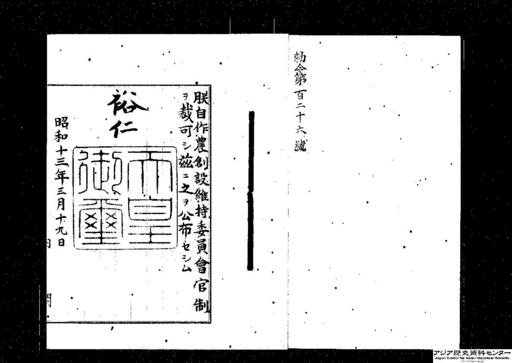 勅令第百二十六號
朕自作農創設維持委員會官制
ヲ裁可シ茲ニ之ヲ公布セシム
裕仁
天皇御璽
昭和十三年三月十九日
アジア歴史資料センター
Japan Center for Asian Historical Records